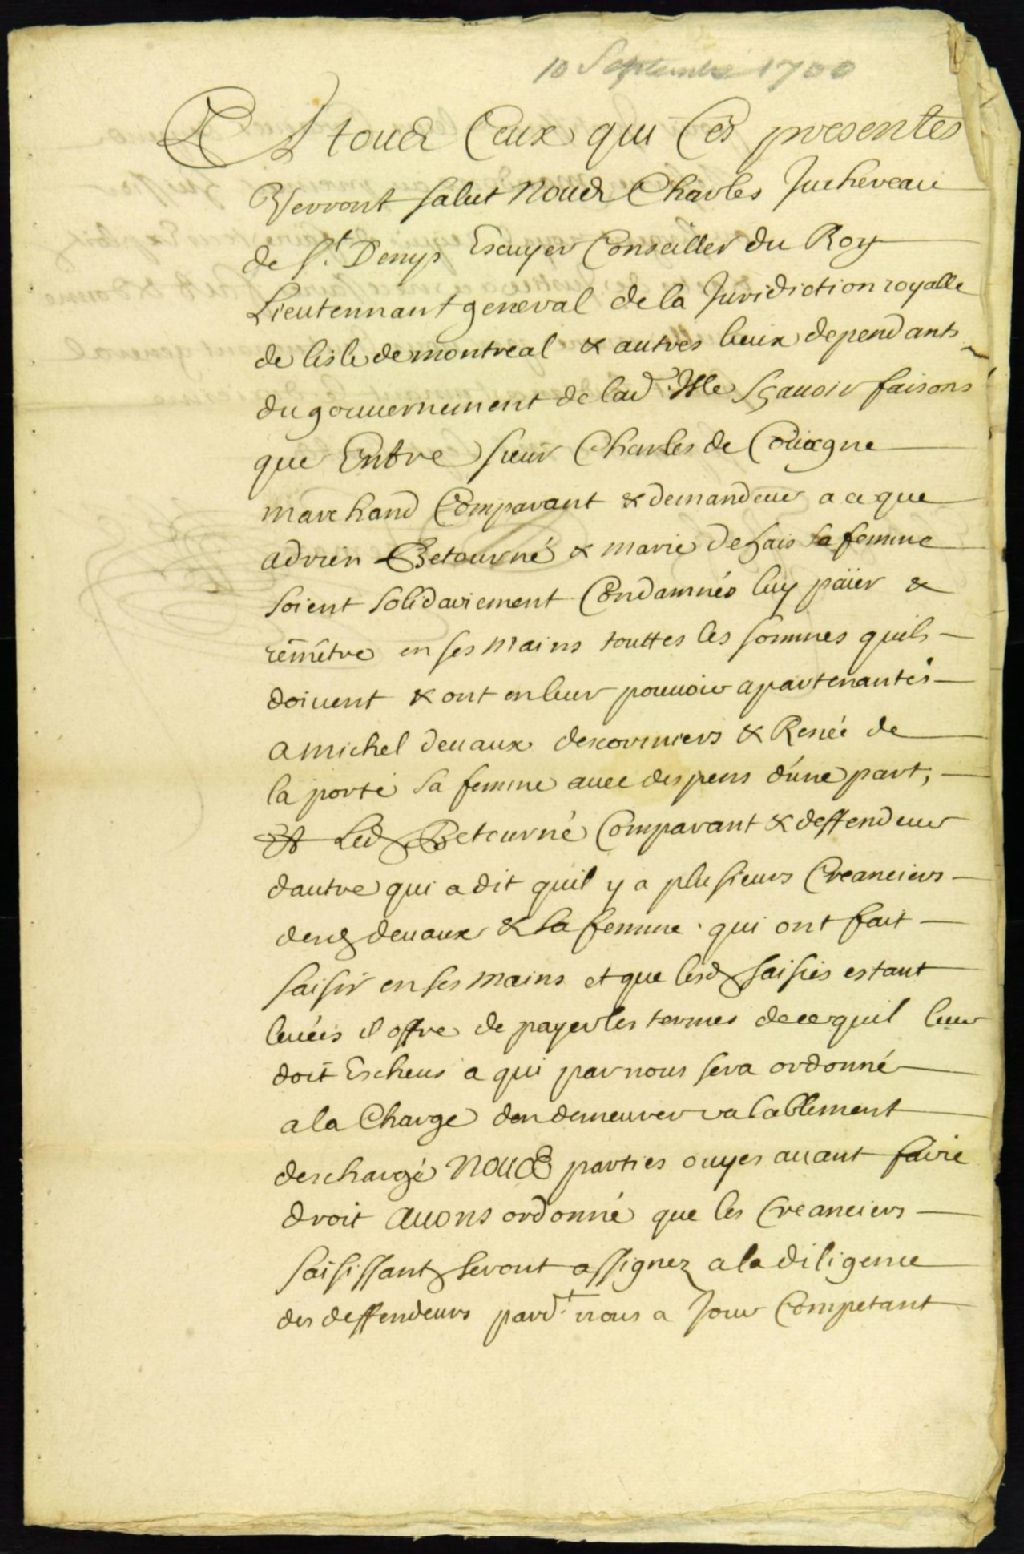 10 Septembre 1700
A tous Ceux qui Ces presentes
Verront salut Nous Charles Juchereau
de St. Denys Escuyer Conseiller du Roy
Lieutennant general de la Juridiction royalle
de lisle de montreal & autres lieux dependants
du gouvernement de lad. Isle Sçavoir faisons
que Entre sieur Charles de Couagne
marchand Comparant & demandeur a ce que
adrien Betourné & marie deshais sa femme
soient solidairement Condamnés luy païer &
remêtre en ses mains touttes les sommes quils
doivent & ont en leur pouvoir apartenantes
a michel devaux descormiers & Renée de
la porte sa femme avec despens d'une part,
Et Led. Betourné Comparant & deffendeur
dautre qui a dit quil y a plusieurs Creanciers
desd. devaux & sa femme qui ont fait
saisir en ses mains et que lesd. saisies estant
levées il offre de payer les termes de ce quil leur
doit Escheus a qui par nous sera ordonné
a la Charge den demeurer valablement
deschargé Nous parties ouyes avant faire
droit avons ordonné que les Creanciers
saisissants seront assignez a la diligence
des deffendeurs pard.t nous a Jour Competant